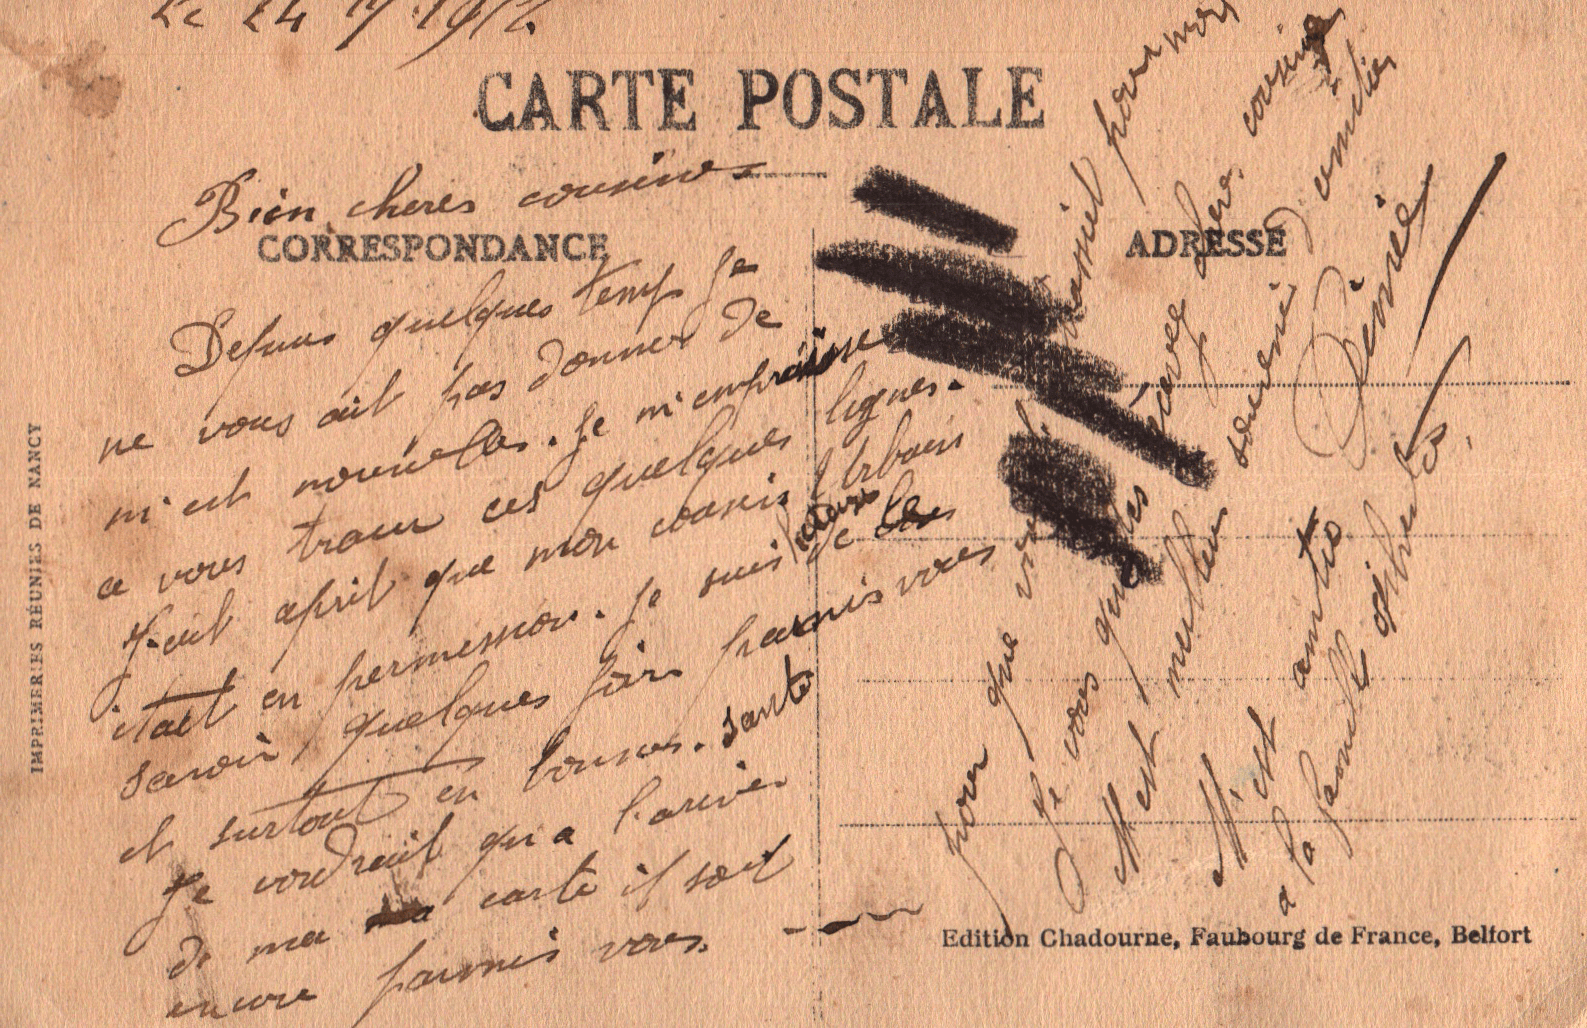 Le 24
CARTE POSTALE
Bien cheres cousines
CORRESPONDANCE
ADRESSE
Depuis quelques temps Je
ne vous ait pas donner de
m'est nouvelles. Je m'empraisse
a vous tracer ces quelques lignes.
J'ait aprit que mon cousin Urbain
itait en permession. Je suis de
savoir quelques foix parmis vous
et surtout en bonnes. santé
Je voudrait qu'a l'ariver
de ma carte il soit
encore parmis vous.
pour que pour moi
Je vous quites cheres cousines
M'est meilleur souvenir d'amitier
M'est amitié Désiré
a la famille
IMPRIMERIES RÉUNIES DE NANCY
Edition Chadourne, Faubourg de France, Belfort